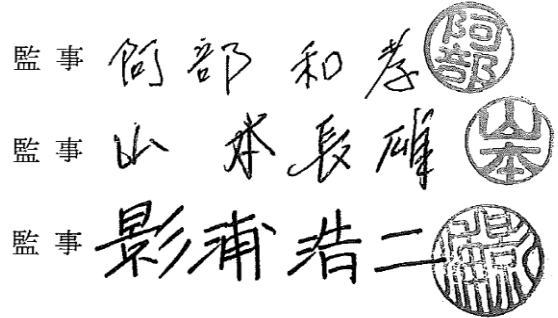 監事 阿部和孝 阿部
監事 山本長雄 山本
監事 影浦浩二